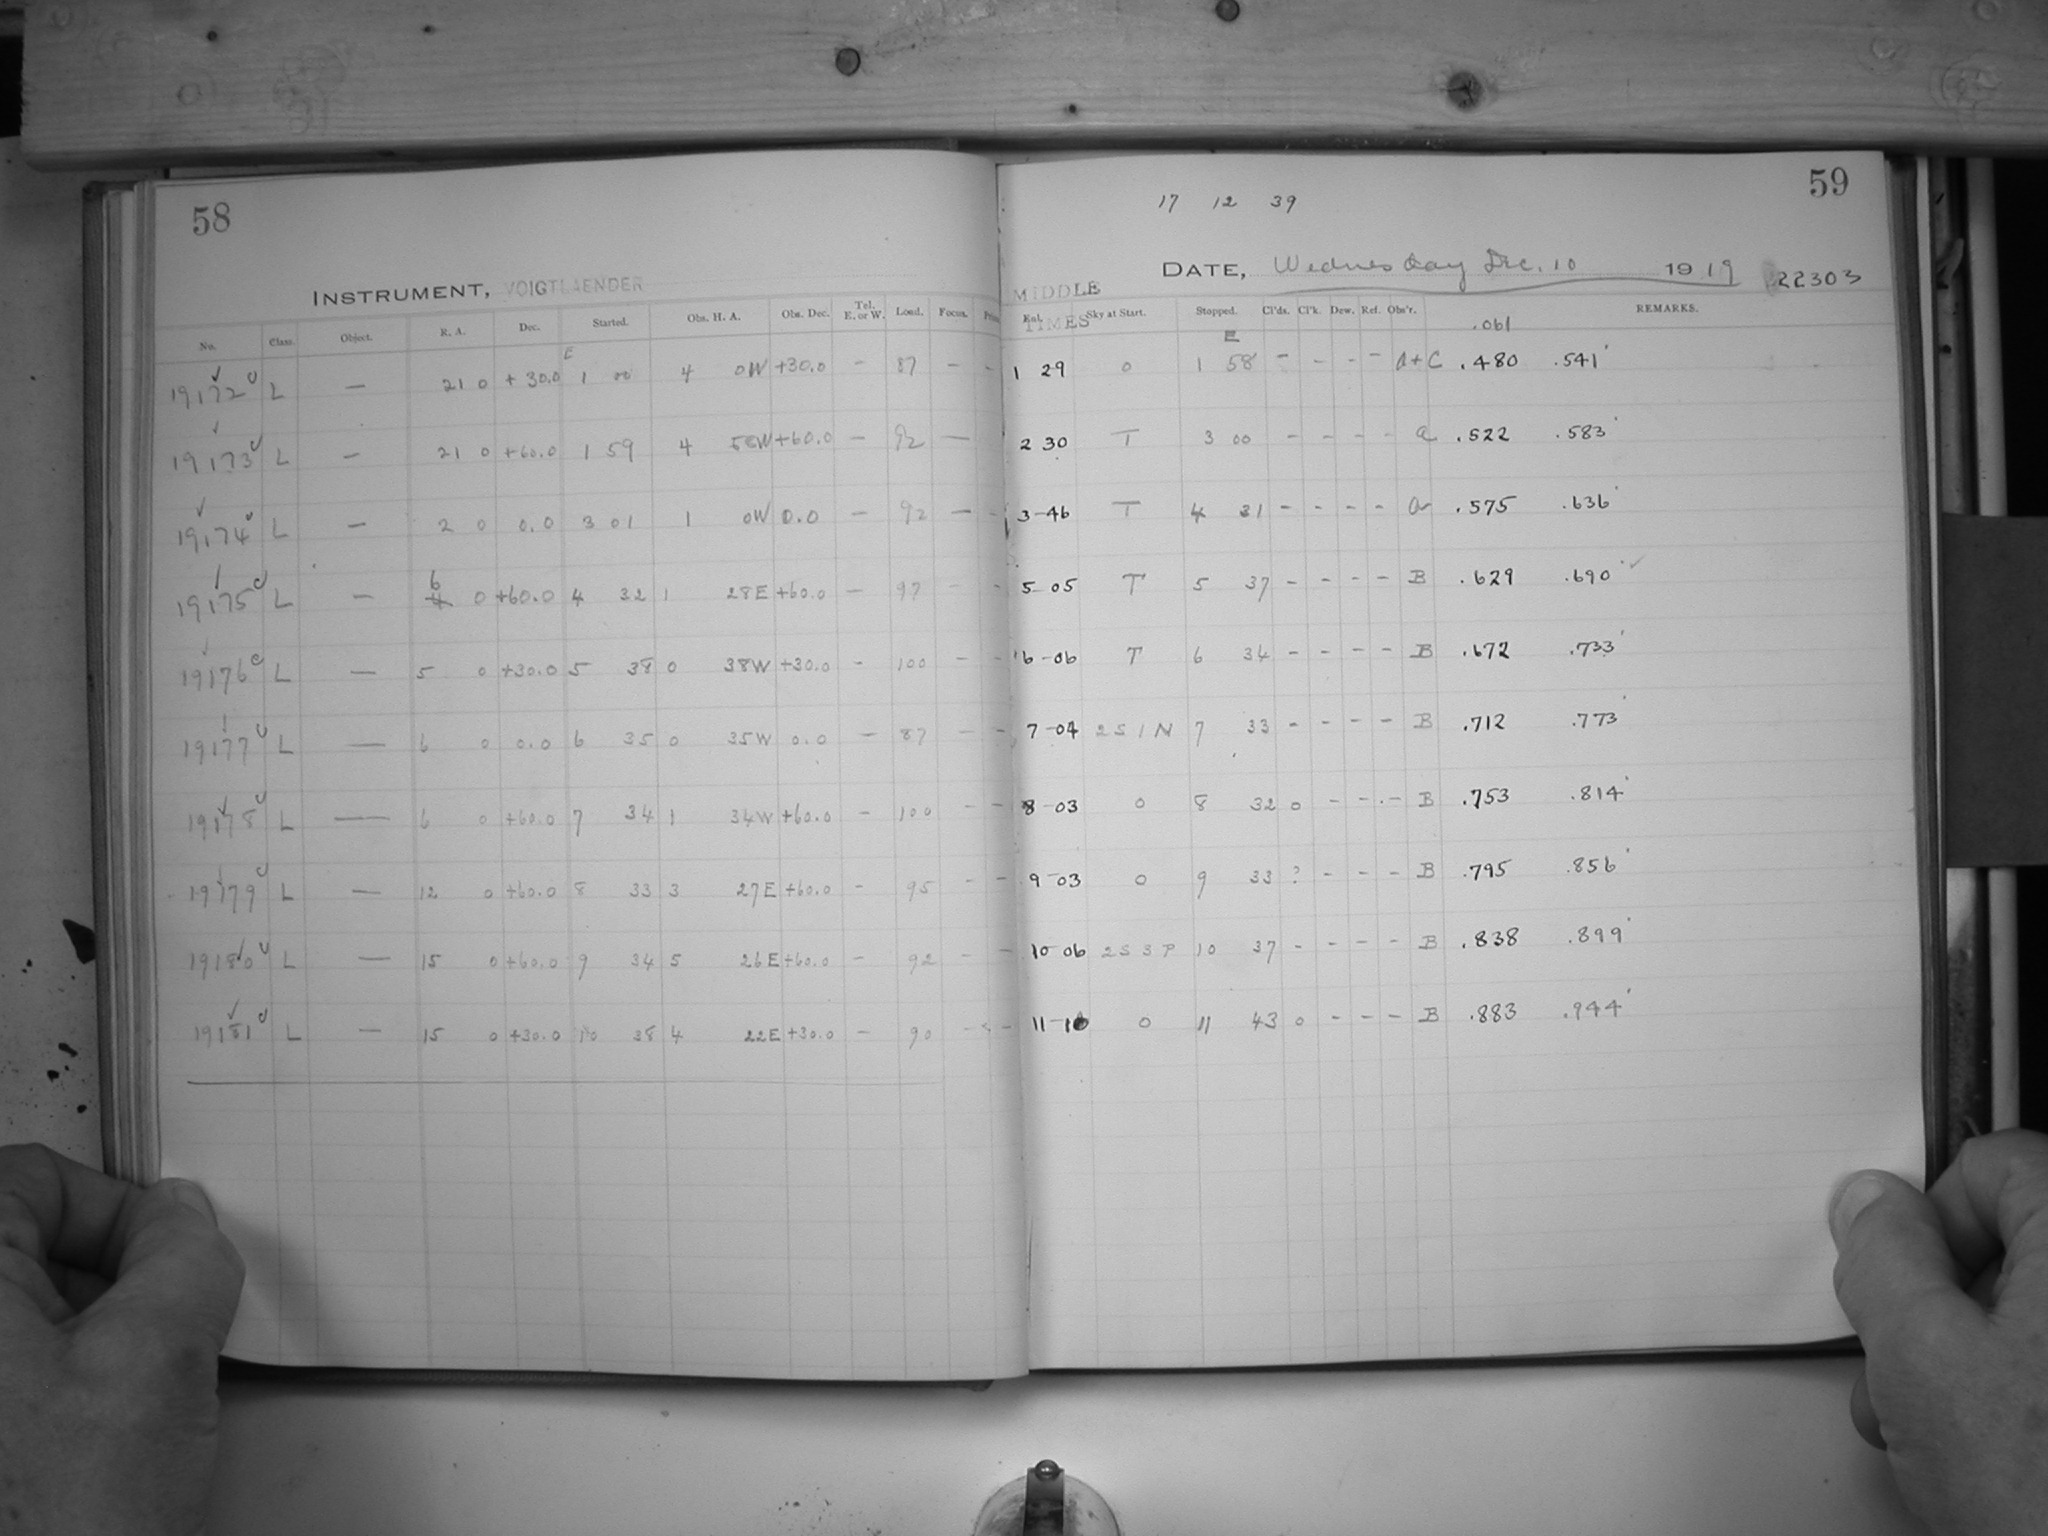 58
INSTRUMENT, VOIGTLAENDER
No. Class. Object. R. A. Dec. Started. Obs. H. A. Obs. Dec. Tel. E. or W. Load. Focus.
E
19172 L — 21 0 + 30.0 1 00 4 0W +30.0 — 87 —
19173 L — 21 0 +60.0 1 59 4 58W +60.0 — 92 —
19174 L — 2 0 0.0 3 01 1 0W 0.0 — 92 —
19175 L — 6 0 +60.0 4 32 1 28E +60.0 — 97 -
19176 L — 5 0 +30.0 5 38 0 38W +30.0 - 100 -
19177 L — 6 0 0.0 6 35 0 35W 0.0 — 87 -
19178 L — 6 0 +60.0 7 34 1 34W +60.0 — 100 -
19179 L — 12 0 +60.0 8 33 3 27E +60.0 - 95 -
19180 L — 15 0 +60.0 9 34 5 26E +60.0 - 92 -
19181 L — 15 0 +30.0 10 38 4 22E +30.0 — 90 -
59
17 12 39
DATE, Wednesday Dec. 10 1919 22303
MIDDLE
TIMES
Sky at Start. Stopped. Cl'ds. Cl'k. Dew. Ref. Obs'r. REMARKS.
E .061
1 29 0 1 58 - - - - a+C .480 .541
2 30 T 3 00 - - - - a .522 .583
3-46 T 4 31 - - - - a .575 .636
5-05 T 5 37 - - - - B .629 .690
6-06 T 6 34 - - - - B .672 .733
7-04 2S1N 7 33 - - - - B .712 .773
8-03 0 8 32 0 - - - B .753 .814
9-03 0 9 33 ? - - - B .795 .856
10-06 2S3P 10 37 - - - - B .838 .899
11-10 0 11 43 0 - - - B .883 .944